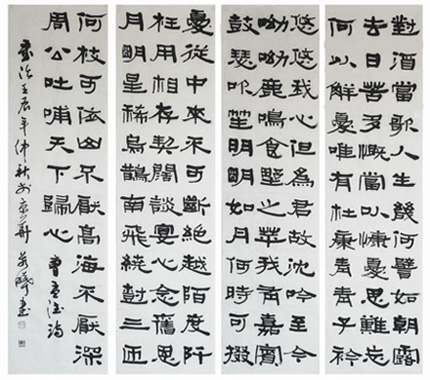 對酒當歌人生幾何譬如朝露
去日苦多慨當以慷憂思難忘
何以解憂唯有杜康青青子衿
悠悠我心但為君故沈吟至今
呦呦鹿鳴食野之苹我有嘉賓
鼓瑟吹笙明明如月何時可掇
憂從中來不可斷絕越陌度阡
枉用相存契闊談宴心念舊恩
月明星稀烏鵲南飛繞樹三匝
何枝可依山不厭高海不厭深
周公吐哺天下歸心 曹孟德詩
歲次壬辰年仲秋於京華 書